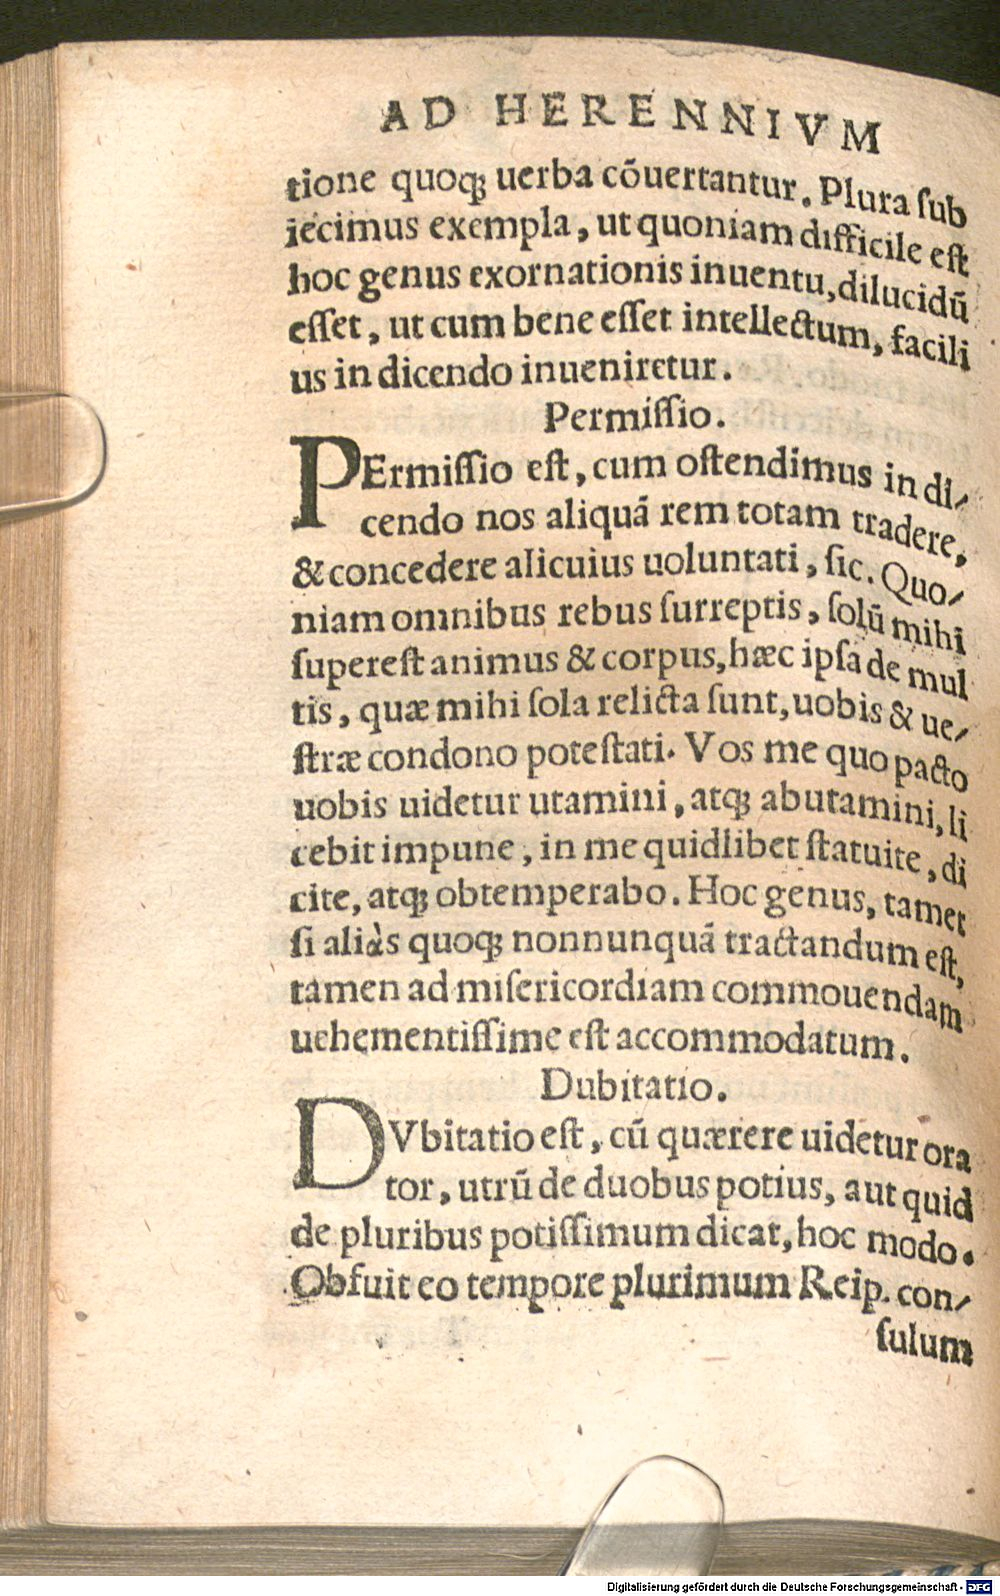 AD HERENNIVM
tione quoqꝫ uerba cōuertantur. Plura ſub
iecimus exempla, ut quoniam difficile eſt
hoc genus exornationis inuentu, dilucidū
eſſet, ut cum bene eſſet intellectum, facili
us in dicendo inueniretur.
Permiſſio.
PErmiſſio eſt, cum oſtendimus in di-
cendo nos aliquā rem totam tradere,
& concedere alicuius uoluntati, ſic. Quo-
niam omnibus rebus ſurreptis, ſolū mihi
ſupereſt animus & corpus, hæc ipſa de mul
tis, quæ mihi ſola relicta ſunt, uobis & ue-
ſtræ condono poteſtati. Vos me quo pacto
uobis uidetur utamini, atqꝫ abutamini, li
cebit impune, in me quidlibet ſtatuite, di
cite, atqꝫ obtemperabo. Hoc genus, tamet
ſi aliàs quoqꝫ nonnunquā tractandum eſt,
tamen ad miſericordiam commouendam
uehementiſſime eſt accommodatum.
Dubitatio.
DVbitatio eſt, cū quærere uidetur ora
tor, utrū de duobus potius, aut quid
de pluribus potiſſimum dicat, hoc modo.
Obfuit eo tempore plurimum Reip. con-
ſulum
Digitalisierung gefördert durch die Deutsche Forschungsgemeinschaft - DFG